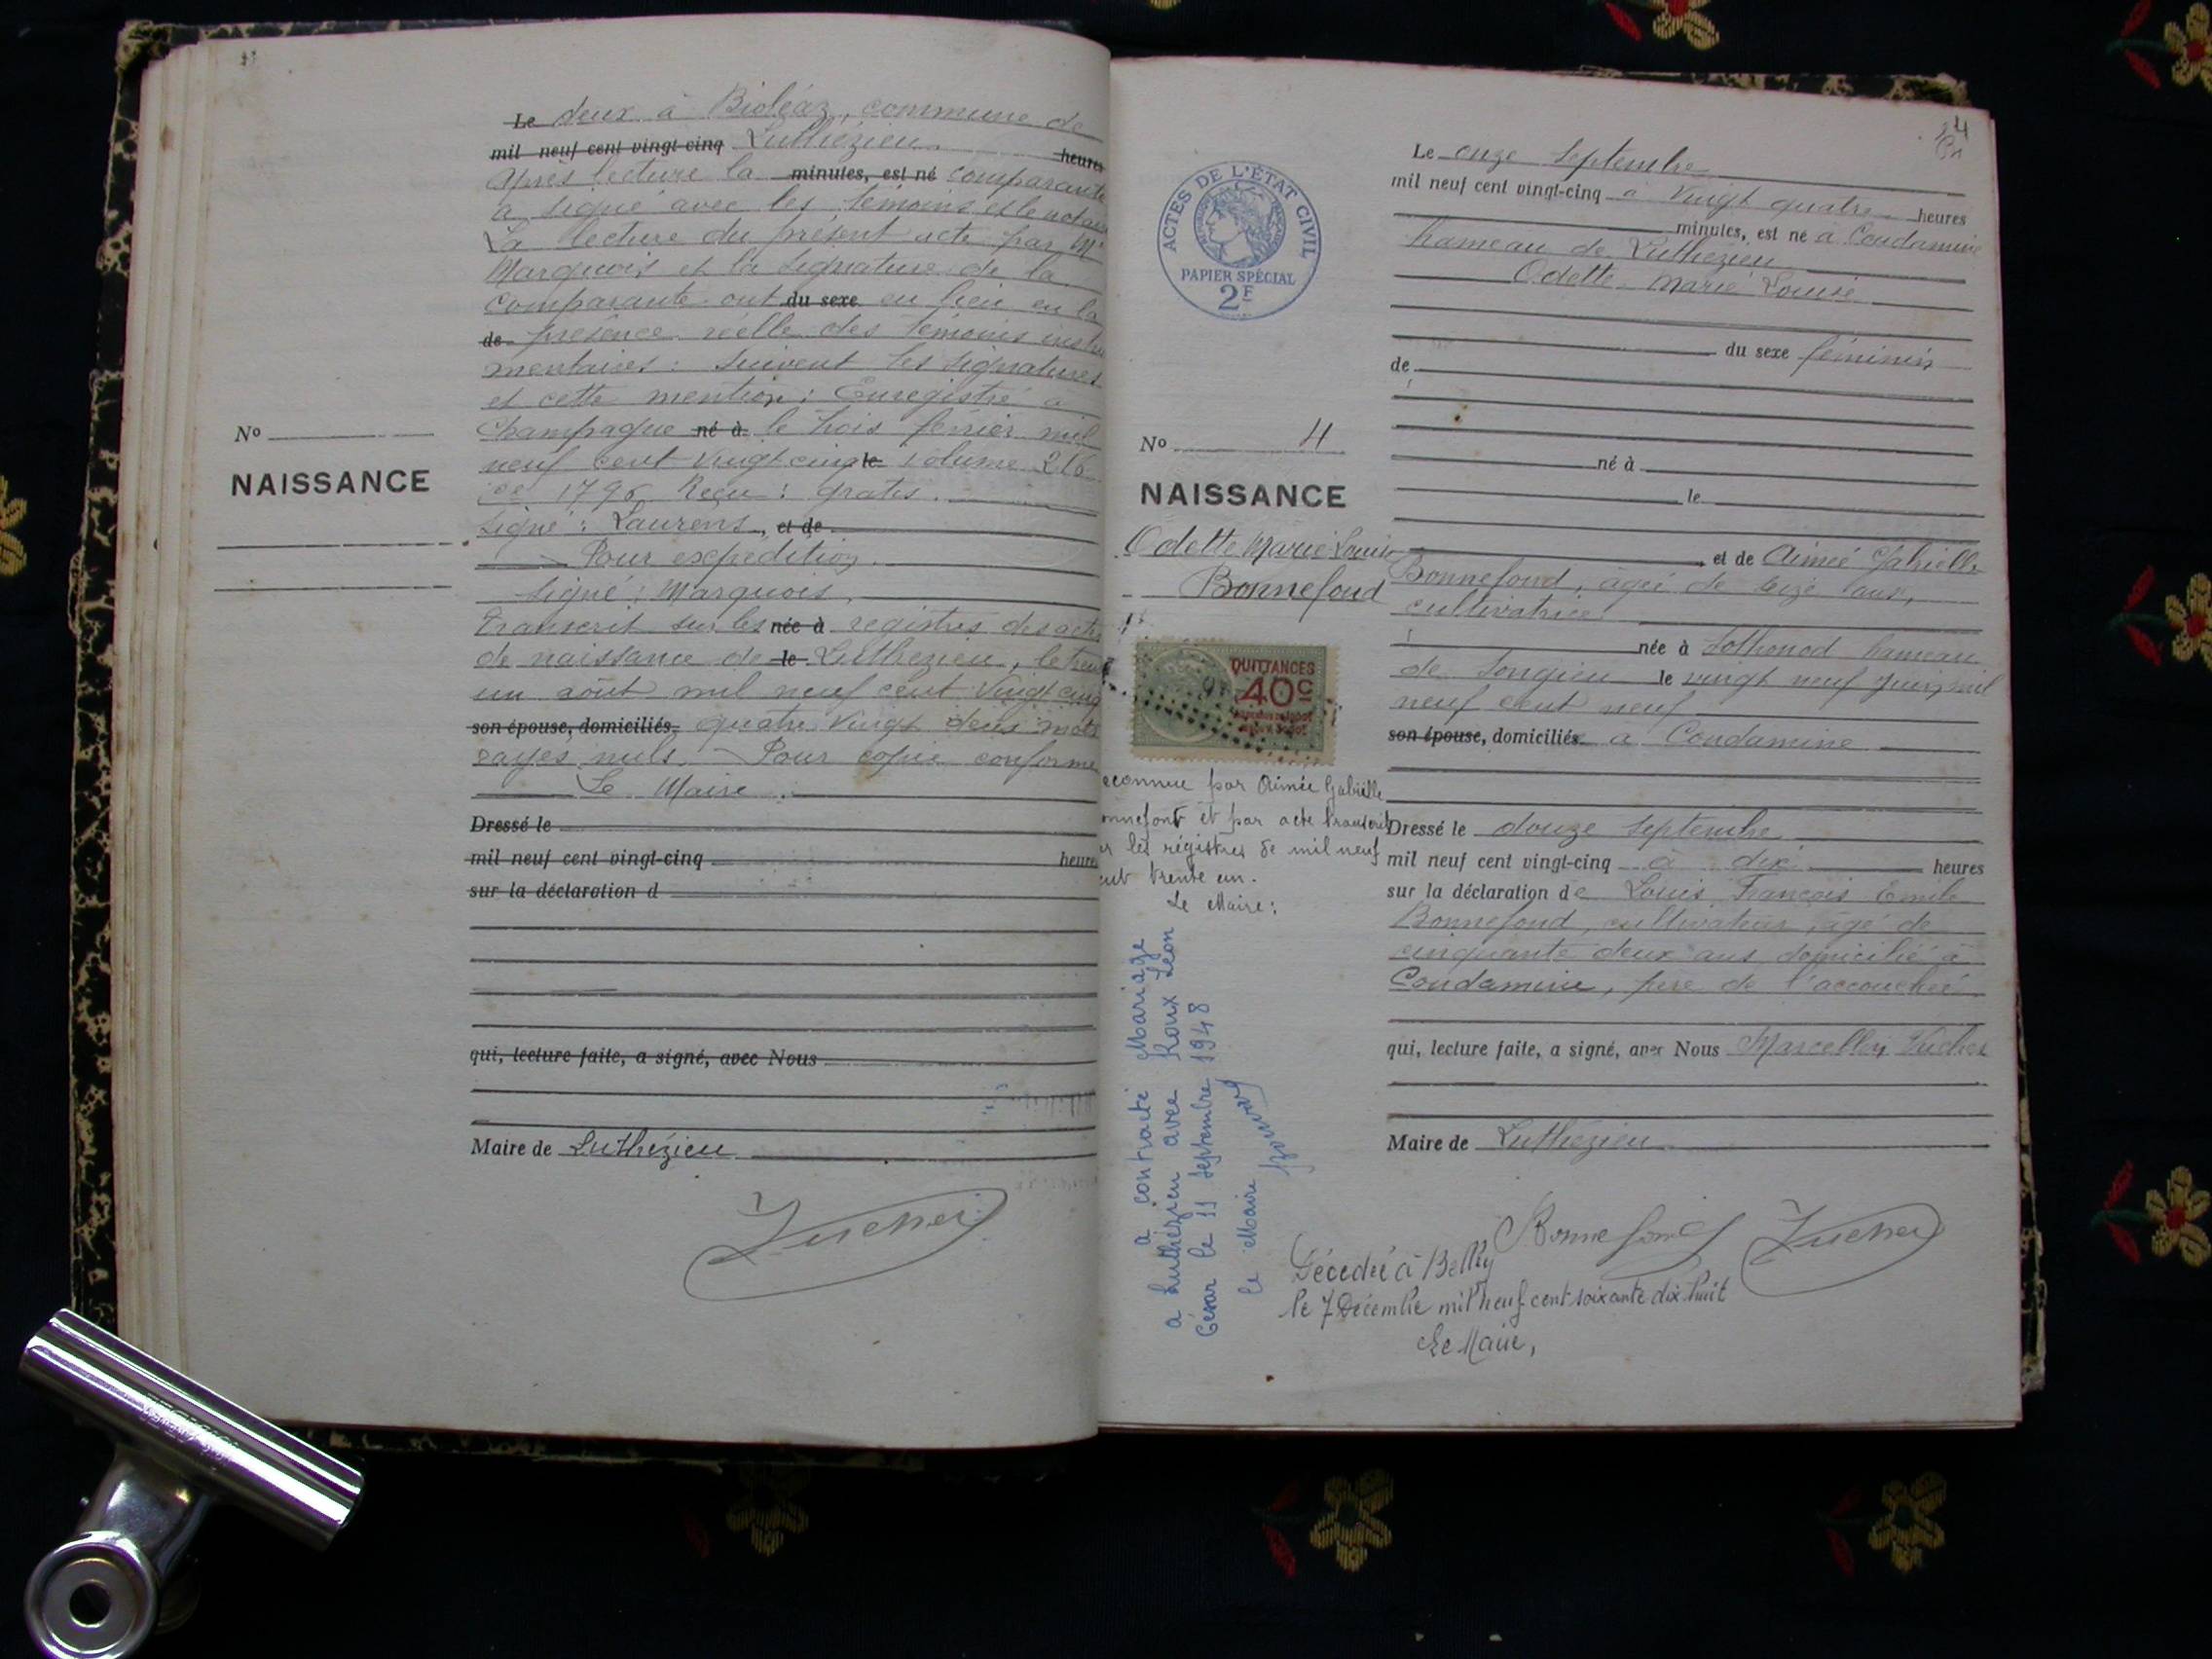 Le deux à Bioléaz, commune de
mil neuf cent vingt-cinq Luthézieu. heures
Après lecture la minutes, est né comparante
a signé avec les témoins et le notaire
La lecture du présent acte par Me
Marquois et la signature de la
comparante ont du sexe eu lieu en la
de présence réelle des témoins instru
mentaires : suivent les signatures
et cette mention : Enregistré à
Champagne né à le trois février mil
neuf cent vingt cinq le volume 216
1796 Reçu : gratis.
signé : Laurens, et de
Pour expédition.
signé : Marquois.
Transcrit sur les née à registres des actes
de naissance de le Luthézieu, le trente
un août mil neuf cent vingt cinq
son épouse, domiciliés, quatre vingt deux mots
rayés nuls. Pour copie conforme
Le Maire.
Dressé le
mil neuf cent vingt-cinq heures
sur la déclaration d
qui, lecture faite, a signé, avec Nous
Maire de Luthézieu
No
NAISSANCE
4
ACTES DE L'ÉTAT CIVIL
PAPIER SPÉCIAL
2F
No 4
NAISSANCE
Odette Marie Louise
Bonnefoud
QUITTANCES
40c
econnue par Aimée Gabrielle
onnefont et par acte transcrit
r les régistres de mil neuf
ent trente un.
Le Maire :
a contracté Mariage
a Luthézieu avec Roux Léon
César le 11 septembre 1948
le Maire
Le onze septembre
mil neuf cent vingt-cinq à vingt quatre heures
minutes, est né à Condamine
hameau de Luthézieu
Odette Marie Louise
du sexe féminin
de
né à
le
et de Aimée Gabrielle
Bonnefoud, âgée de seize ans,
cultivatrice
née à Sothonod hameau
de Songieu le vingt neuf juin mil
neuf cent neuf
son épouse, domiciliés à Condamine
Dressé le douze septembre
mil neuf cent vingt-cinq à dix heures
sur la déclaration de Louis François Emile
Bonnefoud, cultivateur, âgé de
cinquante deux ans domicilié à
Condamine, père de l'accouchée
qui, lecture faite, a signé, avec Nous Marcellin
Maire de Luthézieu
Bonnefoud
Décédée à Belley
le 7 Décembre mil neuf cent soixante dix huit
Le Maire,